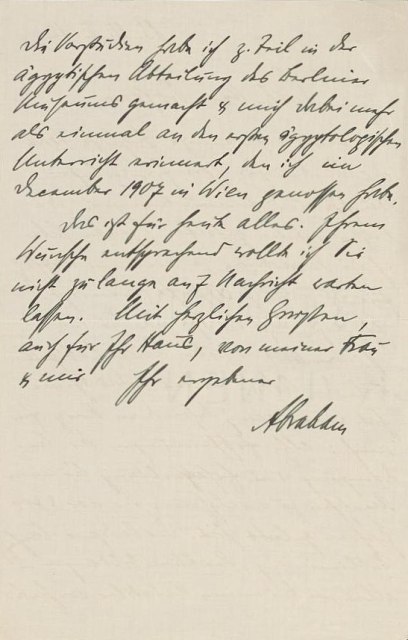 Die Vorstudien habe ich z. Teil in der
ägyptischen Abteilung des Berliner
Museums gemacht, & mich dabei mehr
als einmal an den ersten ägyptologischen
Unterricht erinnert, den ich im
December 1907 in Wien genossen habe.
Das ist für heute alles. Ihrem
Wunsche entsprechend wollte ich Sie
nicht zu lange auf Nachricht warten
lassen. Mit herzlichen Grüssen,
auch für Ihr Haus, von meiner Frau
& mir Ihr ergebener
Abraham